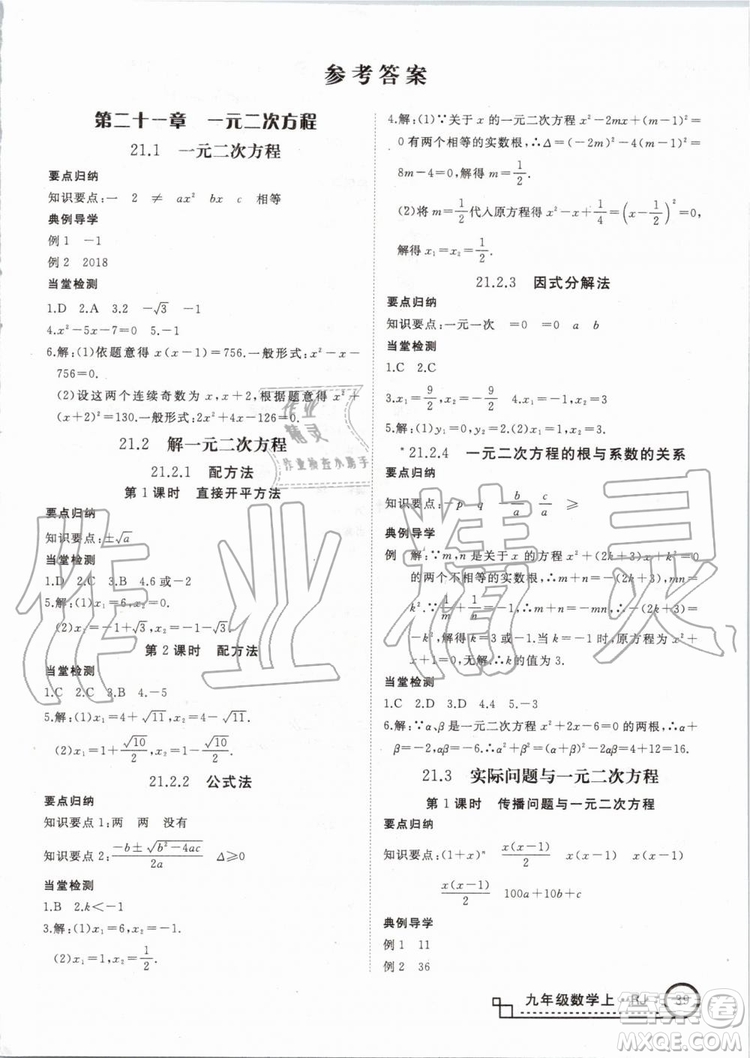 参考答案
第二十一章　一元二次方程
21.1　一元二次方程
要点归纳
知识要点:一　2　≠　ax²　bx　c　相等
典例导学
例1　-1
例2　2018
当堂检测
1.D　2.A　3.2　-√3　-1
4.x²-5x-7=0　5.-1
6.解:(1)依题意得x(x-1)=756.一般形式:x²-x-
756=0.
(2)设这两个连续奇数为x,x+2,根据题意得x²+
(x+2)²=130.一般形式:2x²+4x-126=0.
21.2　解一元二次方程
21.2.1　配方法
第1课时　直接开平方法
要点归纳
知识要点:±√a
当堂检测
1.D　2.C　3.D　4.6或-2
5.解:(1)x₁=6,x₂=
(2)x₁=-2+√3,x₂=-2-√3.
第2课时　配方法
当堂检测
1.C　2.C　3.D　4.-5
5.解:(1)x₁=4+√11,x₂=4-√11.
(2)x₁=1+√10/2,x₂=1-√10/2.
21.2.2　公式法
要点归纳
知识要点1:两　两　没有
知识要点2:(-b±√(b²-4ac))/2a　Δ≥0
当堂检测
1.B　2.k<-1
3.解:(1)x₁=6,x₂=1.
(2)x₁=1,x₂=1/2.
4.解:(1)∵关于x的一元二次方程x²-2mx+(m-1)²=
0有两个相等的实数根,∴Δ=(-2m)²-4(m-1)²=
8m-4=0,解得m=1/2.
(2)将m=1/2代入原方程得x²-x+1/4=(x-1/2)²=0,
解得x₁=x₂=1/2.
21.2.3　因式分解法
要点归纳
知识要点:一元一次　=0　=0　a　b
当堂检测
1.C　2.C
3.x₁=9/2,x₂=-9/2　4.x₁=x₂=
5.解:(1)y₁=y₂=
*21.2.4　一元二次方程的根与系数的关系
要点归纳
知识要点:-p　q　-b/a　c/a　≥
典例导学
例　解:∵m,n是关于x的一元二次方程x²+(2k+3)x+k²=0
的两个不相等的实数根,∴m+n=-(2k+3),mn=
k².
-k²,解得k=　则k²-(2k+3)=0,即原方程可
无解;∴k的值为3.
当堂检测
1.C　2.D　3.D　4.4　5.-3
6.解:∵α,β是一元二次方程x²+2x-6=0的两根,∴α+
β=-2,αβ=-6.∴α²+β²=(α+β)²-2αβ=4+12=16.
21.3　实际问题与一元二次方程
第1课时　传播问题与一元二次方程
要点归纳
知识要点:(1+x)ⁿ　x(x-1)/2　x(x-1)　x(x-1)
x(x-1)/2　100a+10b+c
典例导学
例1　11
例2　36
九年级数学上·RJ　39
作业精灵
作业
精灵
作业检查小助手
答案圈
MXQE.COM